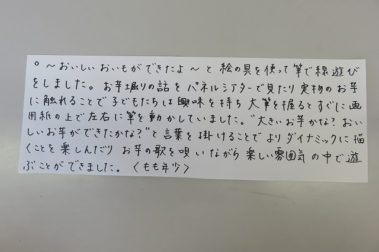 ○ 〜おいしいおいもができたよ〜と 絵の具を使って筆で線遊び
をしました。お芋掘りの話をパネルシアターで見たり実物のお芋
に触れることで子どもたちは興味を持ち大筆を握るとすぐに画
用紙の上で左右に筆を動かしていました。"大きいお芋かな?おい
しいお芋ができたかな?"と言葉を掛けることでよりダイナミックに描
くことを楽しんだりお芋の歌を唄いながら楽しい雰囲気の中で遊
ぶことができました。(もも年少)